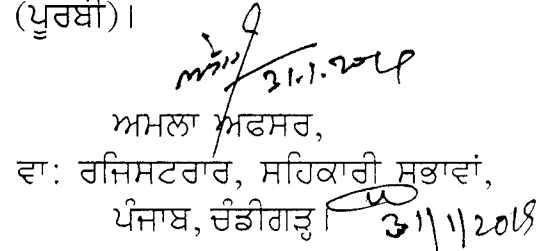 (ਪੂਰਬੀ)।
31.1.2019
ਅਮਲਾ ਅਫਸਰ,
ਵਾ: ਰਜਿਸਟਰਾਰ, ਸਹਿਕਾਰੀ ਸਭਾਵਾਂ,
ਪੰਜਾਬ, ਚੰਡੀਗੜ੍ਹ।
31/1/2019